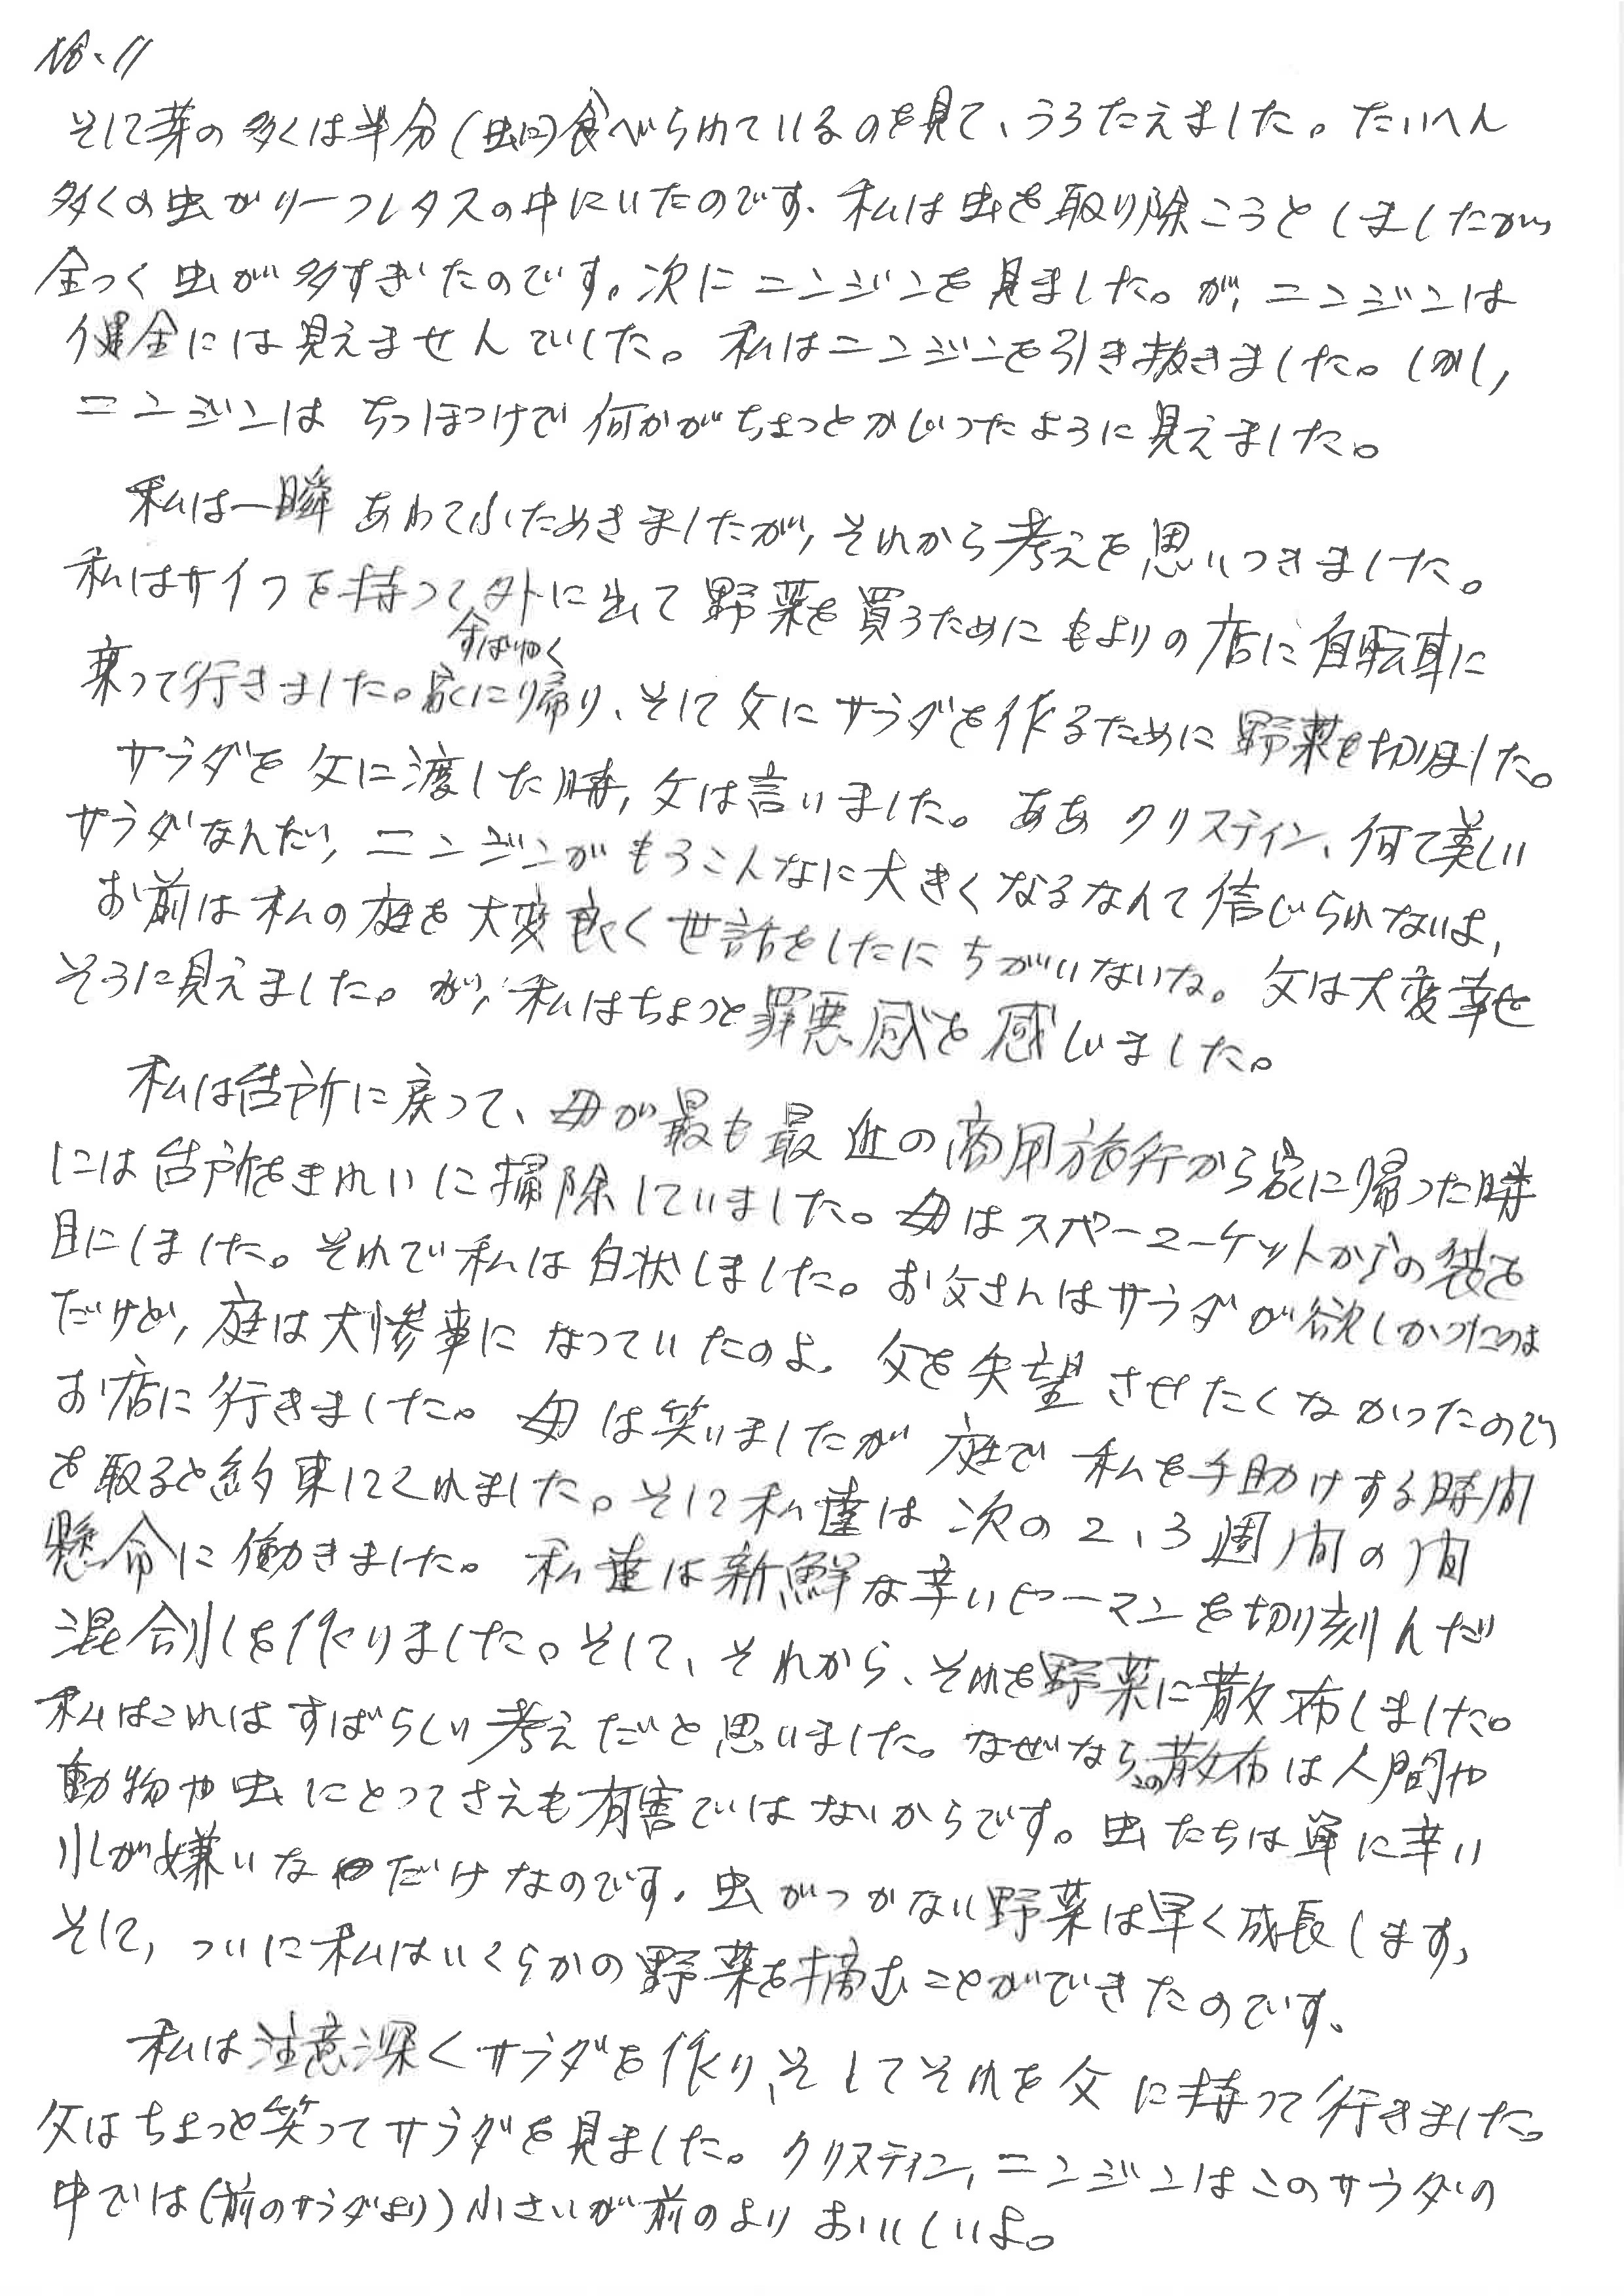 No.11
そして芽の多くは半分(虫に)食べられているのを見て、うろたえました。たいへん
多くの虫がリーフレタスの中にいたのです。私は虫を取り除こうとしましたが、
全っく虫が多すぎたのです。次にニンジンを見ました。が、ニンジンは
健全には見えませんでした。私はニンジンを引き抜きました。しかし、
ニンジンは ちっぽっけで何かがちょっとかじったように見えました。
私は一瞬あわてふためきましたが、それから考えを思いつきました。
私はサイフを持って外に出て野菜を買うためにもよりの店に自転車に
すばやく
乗って行きました。家に帰り、そして父にサラダを作るために野菜を切りました。
サラダを父に渡した時、父は言いました。ああクリスティン、何て美しい
サラダなんだ、ニンジンがもうこんなに大きくなるなんて信じられないよ、
お前は私の庭を大変良く世話をしたにちがいないな。父は大変幸せ
そうに見えました。が、私はちょっと罪悪感を感じました。
私は台所に戻って、母が最も最近の商用旅行から家に帰った時
には台所をきれいに掃除していました。母はスーパーマーケットからの袋を
目にしました。それで私は白状しました。お父さんはサラダが欲しかったのよ
だけど、庭は大惨事になっていたのよ。父を失望させたくなかったので
お店に行きました。母は笑いましたが庭で私を手助けする時間
を取ると約束してくれました。そして私達は次の2、3週間の間
懸命に働きました。私達は新鮮な辛いピーマンを切り刻んだ
混合水を作りました。そして、それから、それを野菜に散布しました。
私はこれはすばらしい考えだと思いました。なぜなら、この散布は人間や
動物や虫にとってさえも有害ではないからです。虫たちは単に辛い
水が嫌いなだけなのです。虫がつかない野菜は早く成長します、
そして、ついに私はいくらかの野菜を摘むことができたのです。
私は注意深くサラダを作り、そしてそれを父に持って行きました。
父はちょっと笑ってサラダを見ました。クリスティン、ニンジンはこのサラダの
中では(前のサラダより)小さいが前のよりおいしいよ。